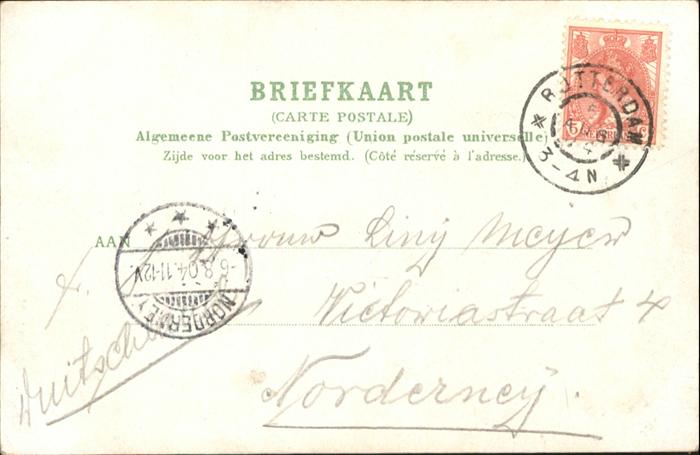 BRIEFKAART
(CARTE POSTALE)
Algemeene Postvereeniging (Union postale universelle)
Zijde voor het adres bestemd. (Côté réservé à l'adresse.)
ROTTERDAM
3-4N
5 c
AAN
Mevrouw Liny Meyer
Victoriastraat 4
Norderney.
Duitschland
NORDERNEY
6.8.04.11-12V.